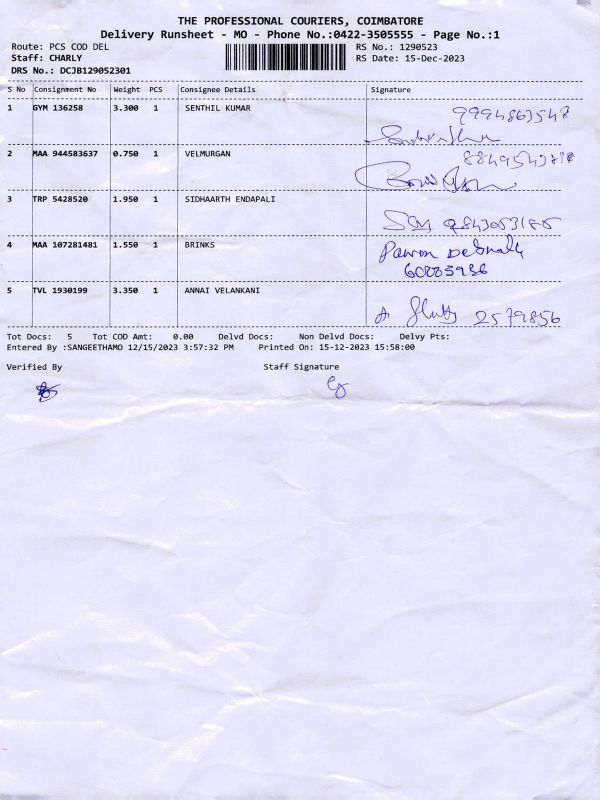 THE PROFESSIONAL COURIERS, COIMBATORE
Delivery Runsheet - MO - Phone No.:0422-3505555 - Page No.:1
Route: PCS COD DEL RS No.: 1290523
Staff: CHARLY RS Date: 15-Dec-2023
DRS No.: DCJB129052301
S No Consignment No Weight PCS Consignee Details Signature
1 GYM 136258 3.300 1 SENTHIL KUMAR 9994863548
2 MAA 944583637 0.750 1 VELMURGAN
3 TRP 5428520 1.950 1 SIDHAARTH ENDAPALI
4 MAA 107281481 1.550 1 BRINKS Pawan Debnath
5 TVL 1930199 3.350 1 ANNAI VELANKANI 2579856
Tot Docs: 5 Tot COD Amt: 0.00 Delvd Docs: Non Delvd Docs: Delvy Pts:
Entered By :SANGEETHAMO 12/15/2023 3:57:32 PM Printed On: 15-12-2023 15:58:00
Verified By Staff Signature